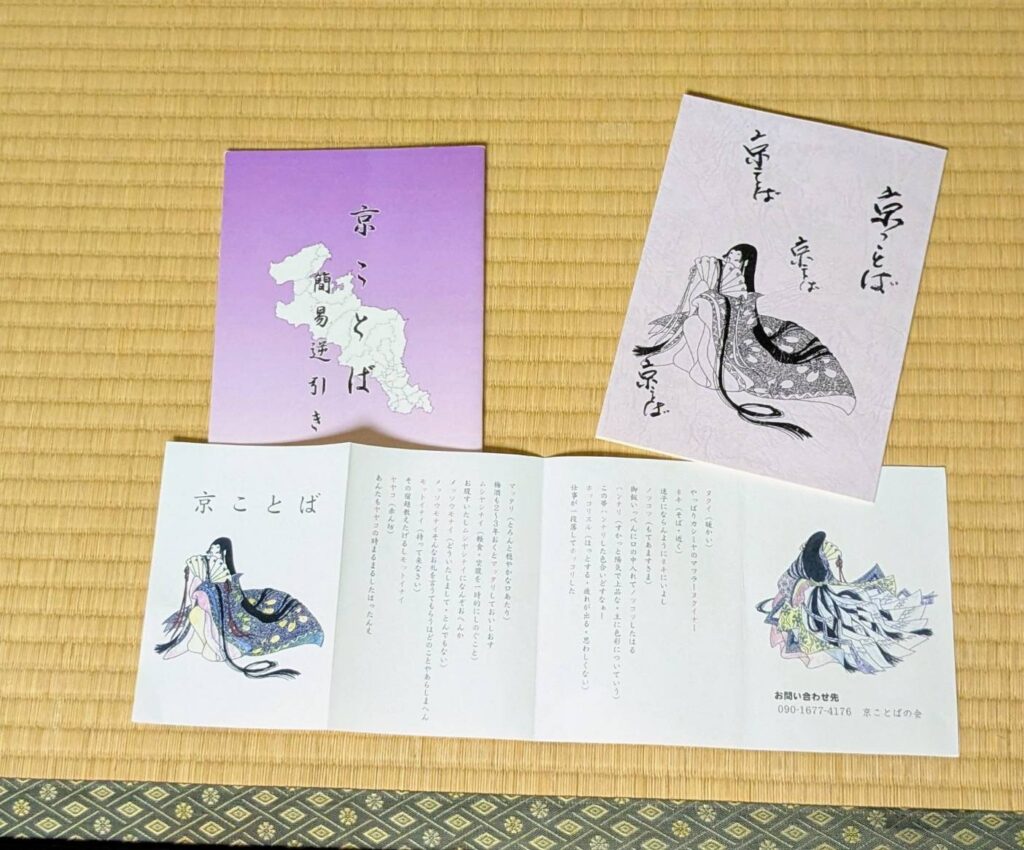 京ことば
簡易逆引き
京ことば
京ことば
京ことば
京ことば
京ことば
ヌクイ（暖かい）
やっぱりカシミヤのマフラーヌクイナー
ネキ（そば・近く）
迷子にならんようにネキにいよし
ノツコツ（もてあますさま）
御飯いっぺんに口の中入れてノツコツしたはる
ハンナリ（すかっと陽気で上品な・主に色彩についていう）
この帯ハンナリした色合いどすなぁー
ホッコリスル（ほっとする・疲れが出る・思わしくない）
仕事が一段落してホッコリした
マッタリ（とろんと穏やかな口あたり）
梅酒も2～3年おくとマッタリしておいしおす
ムシヤシナイ（軽食・空腹を一時的にしのぐこと）
お腹すいたしムシヤシナイになんぞおへんか
メッソウモナイ（どういたしまして・とんでもない）
メッソウモナイそんなお礼を言うてもらうほどのことやあらしまへん
モットイナイ（待って来なさい）
その宿題教えたげるしモットイナイ
ヤヤコ（赤ん坊）
あんたもヤヤコの時まるまるしたはったんえ
お問い合わせ先
090-1677-4176　京ことばの会